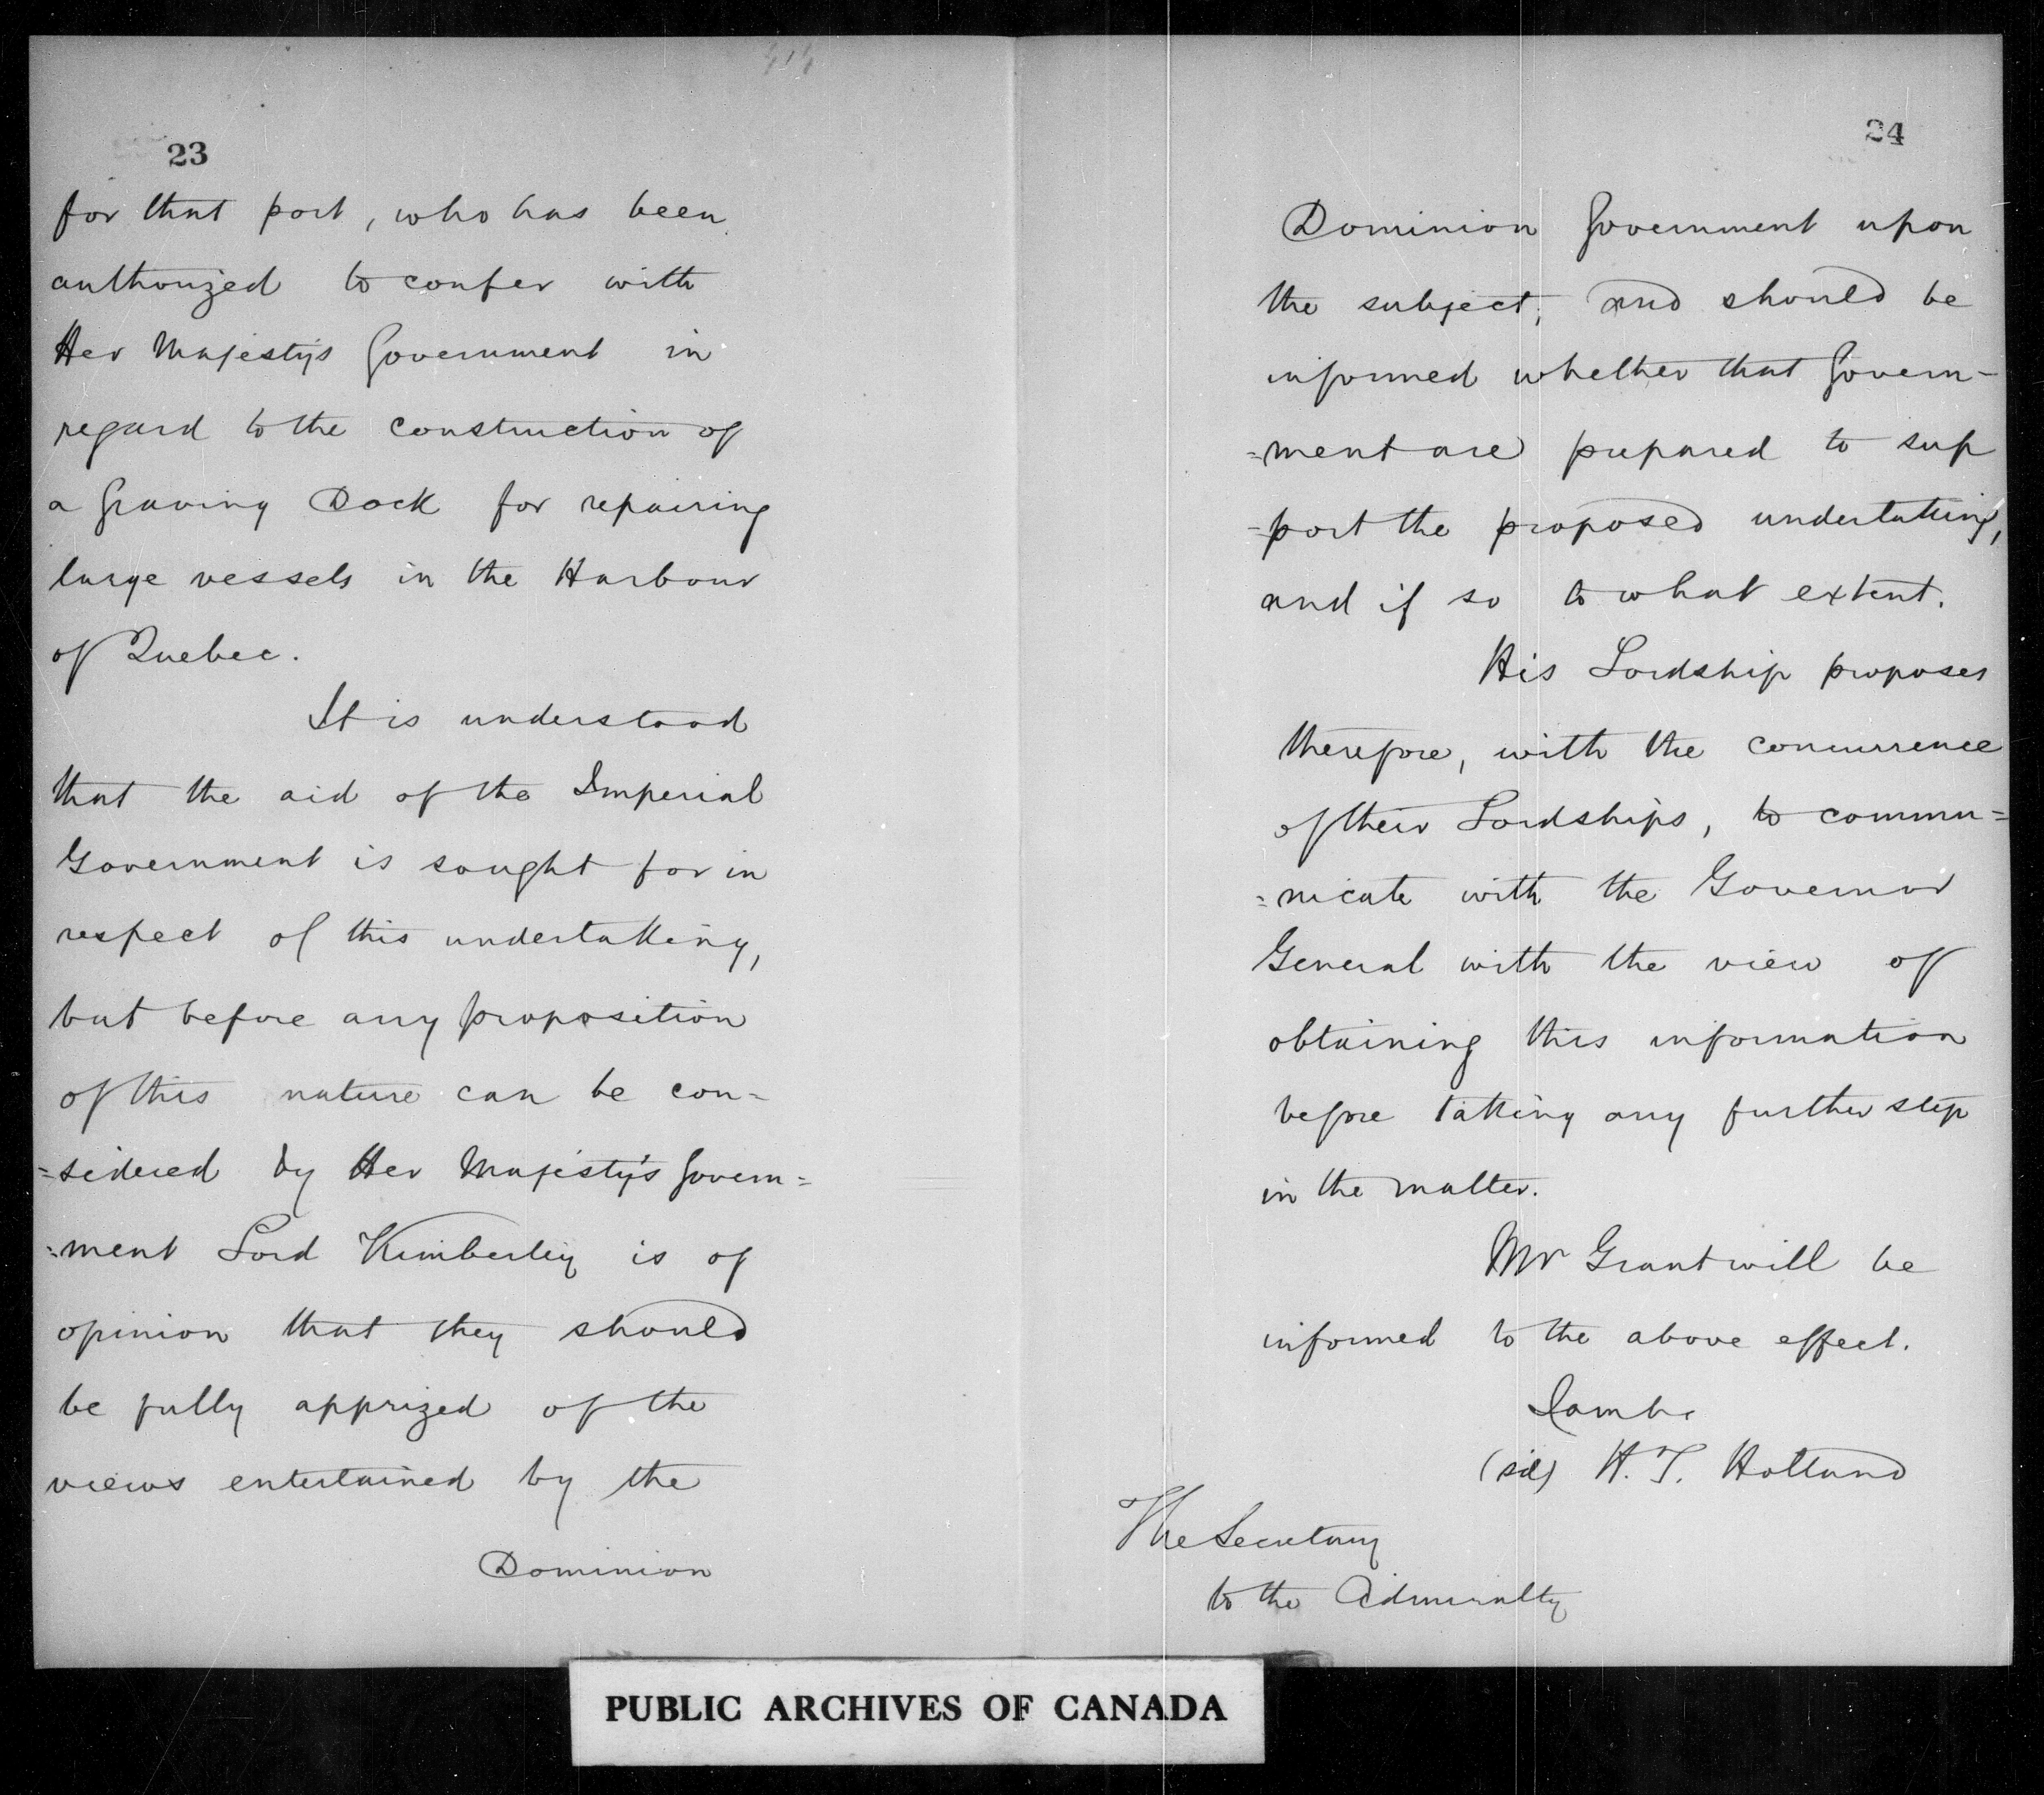 23
for that port, who has been
authorized to confer with
Her Majesty's Government in
regard to the construction of
a Graving Dock for repairing
large vessels in the Harbour
of Quebec.
It is understood
that the aid of the Imperial
Government is sought for in
respect of this undertaking,
but before any proposition
of this nature can be con-
=sidered by Her Majesty's Govern=
=ment Lord Kimberley is of
opinion that they should
be fully apprized of the
views entertained by the
Dominion
24
Dominion Government upon
the subject, and should be
informed whether that Govern-
=ment are prepared to sup
-port the proposed undertaking,
and if so to what extent.
His Lordship proposes
therefore, with the concurrence
of their Lordships, to commu=
=nicate with the Governor
General with the view of
obtaining this information
before taking any further step
in the matter.
Mr Grant will be
informed to the above effect.
I am &c
(sd) H. T. Holland
The Secretary
to the Admiralty
PUBLIC ARCHIVES OF CANADA